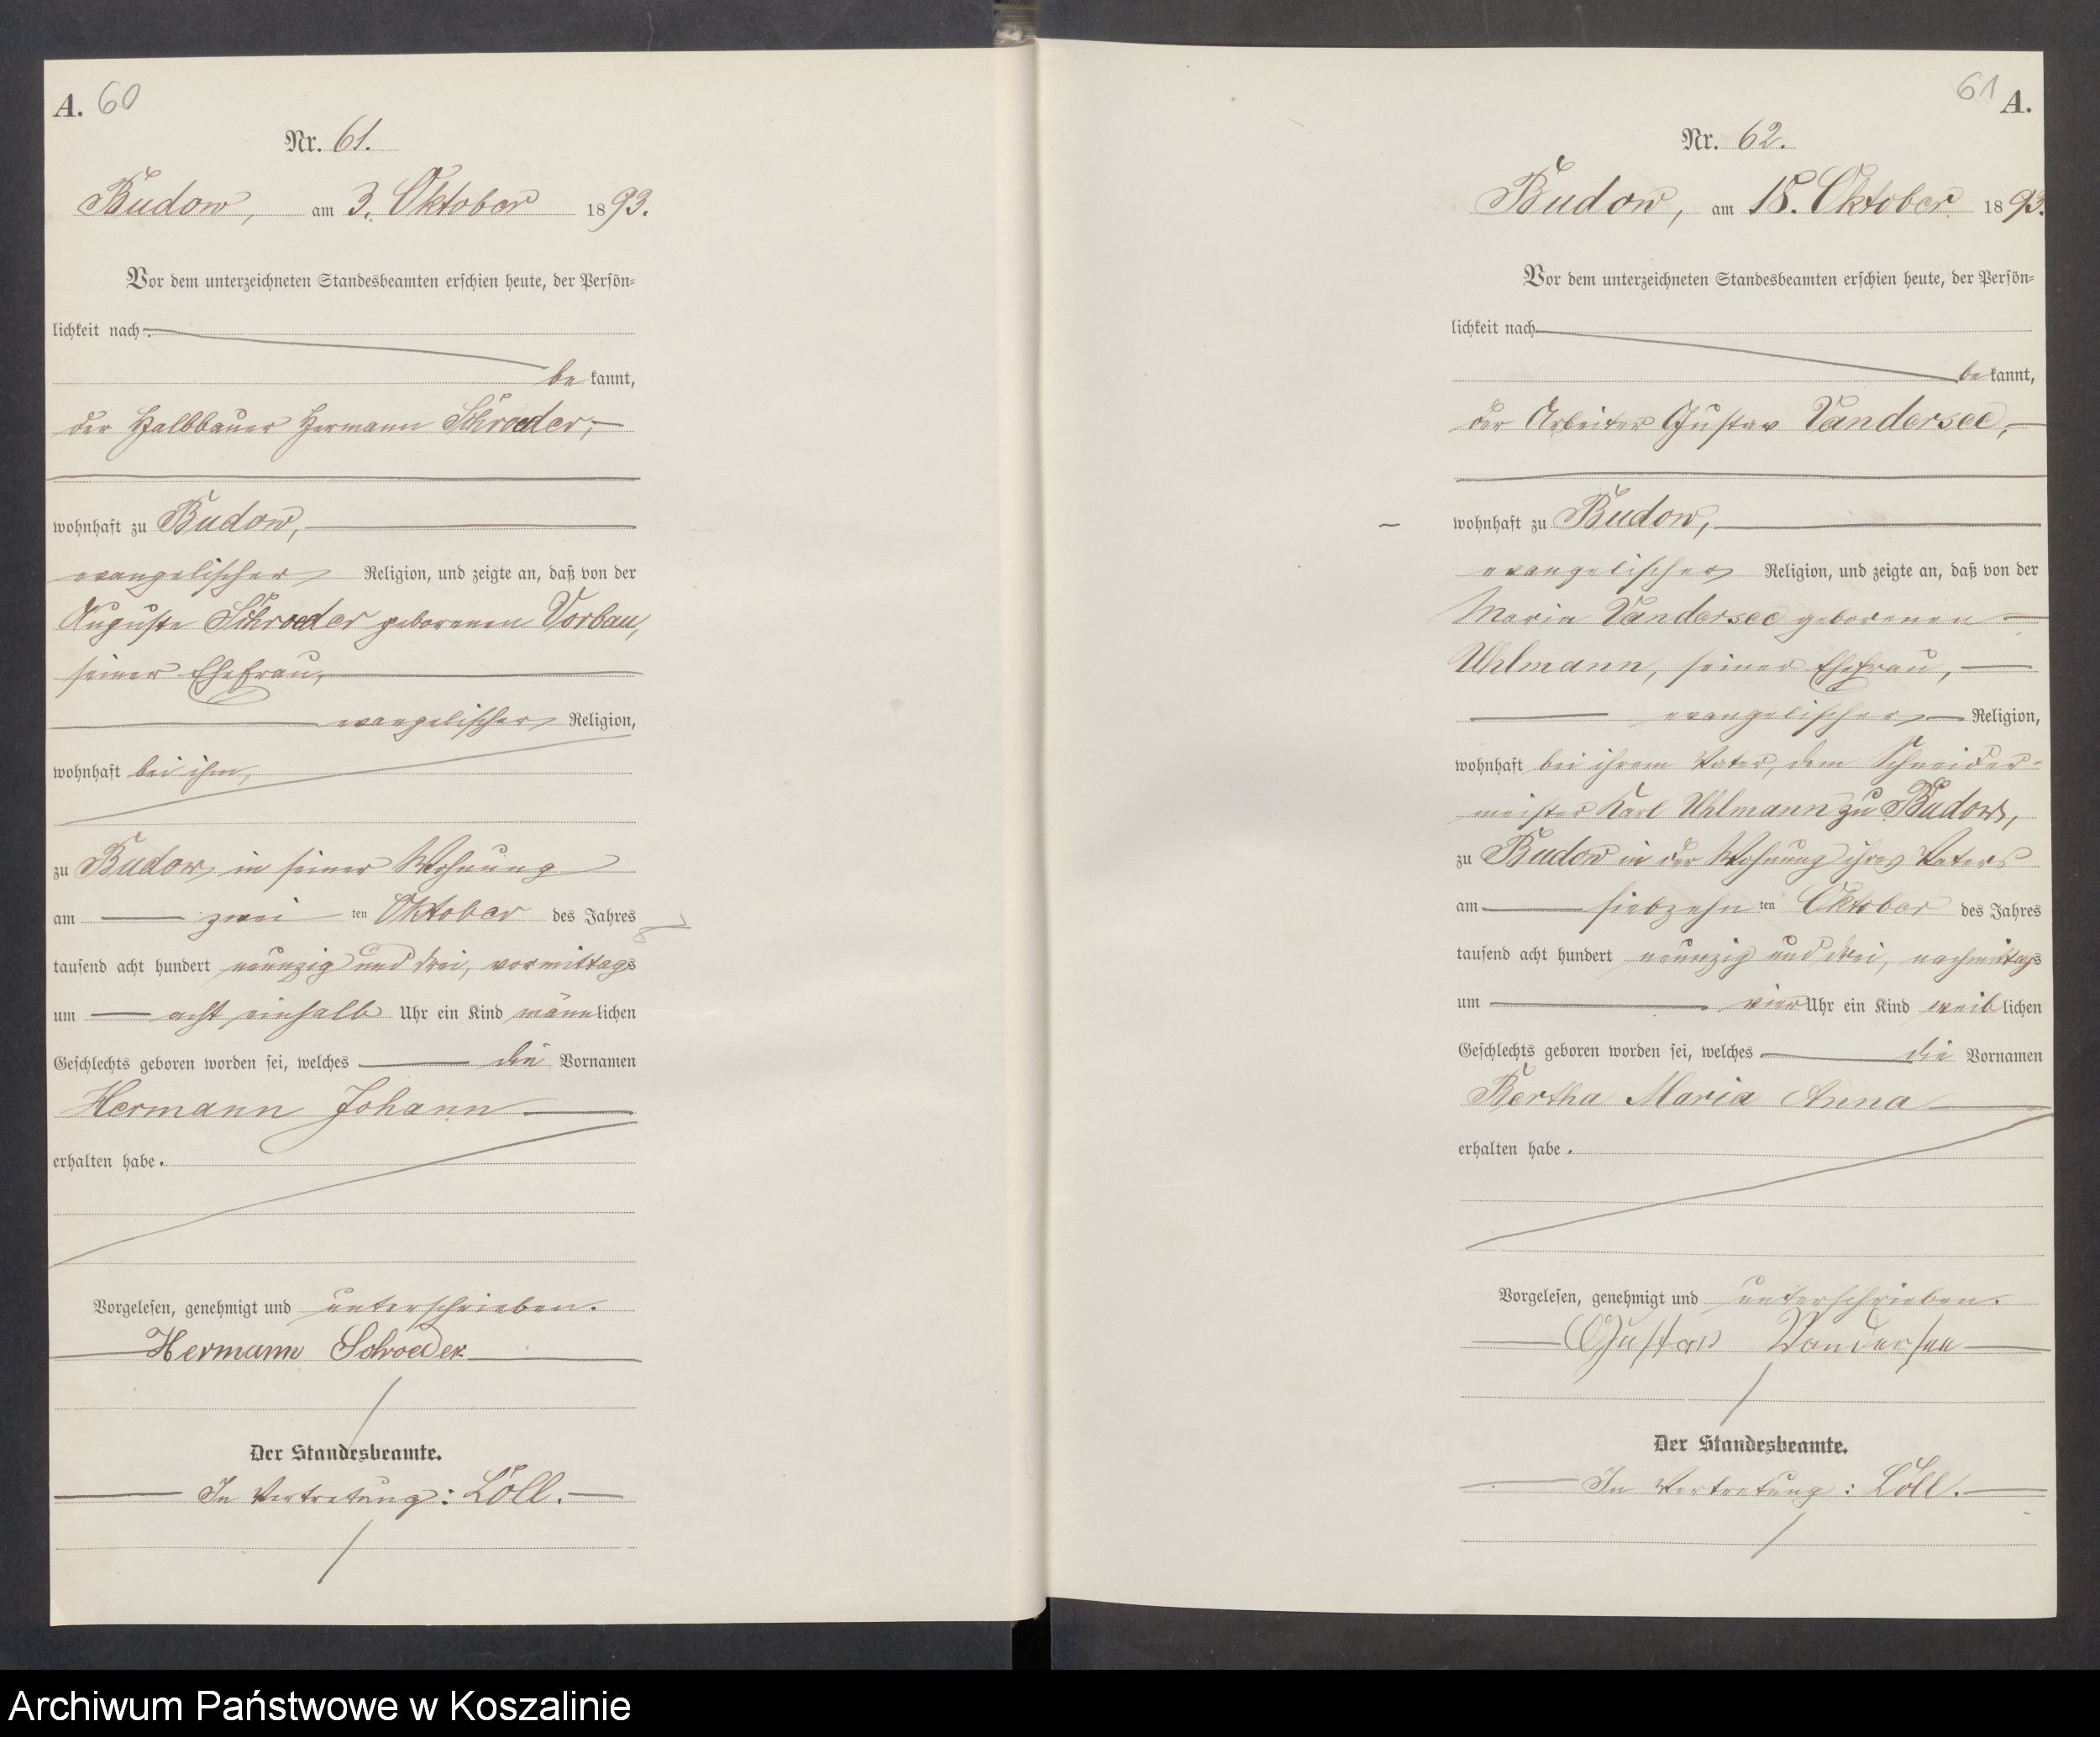 A. 60
Nr. 61.
Budow, am 3. Oktober 1893.
Vor dem unterzeichneten Standesbeamten erschien heute, der Persön-
lichkeit nach
be kannt,
der Halbbauer Hermann Schroeder,
wohnhaft zu Budow,
evangelischer Religion, und zeigte an, daß von der
Auguste Schroeder geborenen Vorbau,
seiner Ehefrau,
evangelischer Religion,
wohnhaft bei ihm,
zu Budow in seiner Wohnung
am zwei ten Oktober des Jahres
tausend acht hundert neunzig und drei, vormittags
um acht einhalb Uhr ein Kind männlichen
Geschlechts geboren worden sei, welches die Vornamen
Hermann Johann
erhalten habe.
Vorgelesen, genehmigt und unterschrieben.
Hermann Schroeder
Der Standesbeamte.
In Vertretung: Löll.
61 A.
Nr. 62.
Budow, am 18. Oktober 1893.
Vor dem unterzeichneten Standesbeamten erschien heute, der Persön-
lichkeit nach
be kannt,
der Arbeiter Gustav Vandersee,
wohnhaft zu Budow,
evangelischer Religion, und zeigte an, daß von der
Maria Vandersee geborenen
Uhlmann, seiner Ehefrau,
evangelischer Religion,
wohnhaft bei ihrem Vater, dem Schneider-
meister Karl Uhlmann zu Budow,
zu Budow in der Wohnung ihres Vaters
am siebzehn ten Oktober des Jahres
tausend acht hundert neunzig und drei, nachmittags
um vier Uhr ein Kind weiblichen
Geschlechts geboren worden sei, welches die Vornamen
Bertha Maria Anna
erhalten habe.
Vorgelesen, genehmigt und unterschrieben.
Gustav Vandersee
Der Standesbeamte.
In Vertretung: Löll.
Archiwum Państwowe w Koszalinie